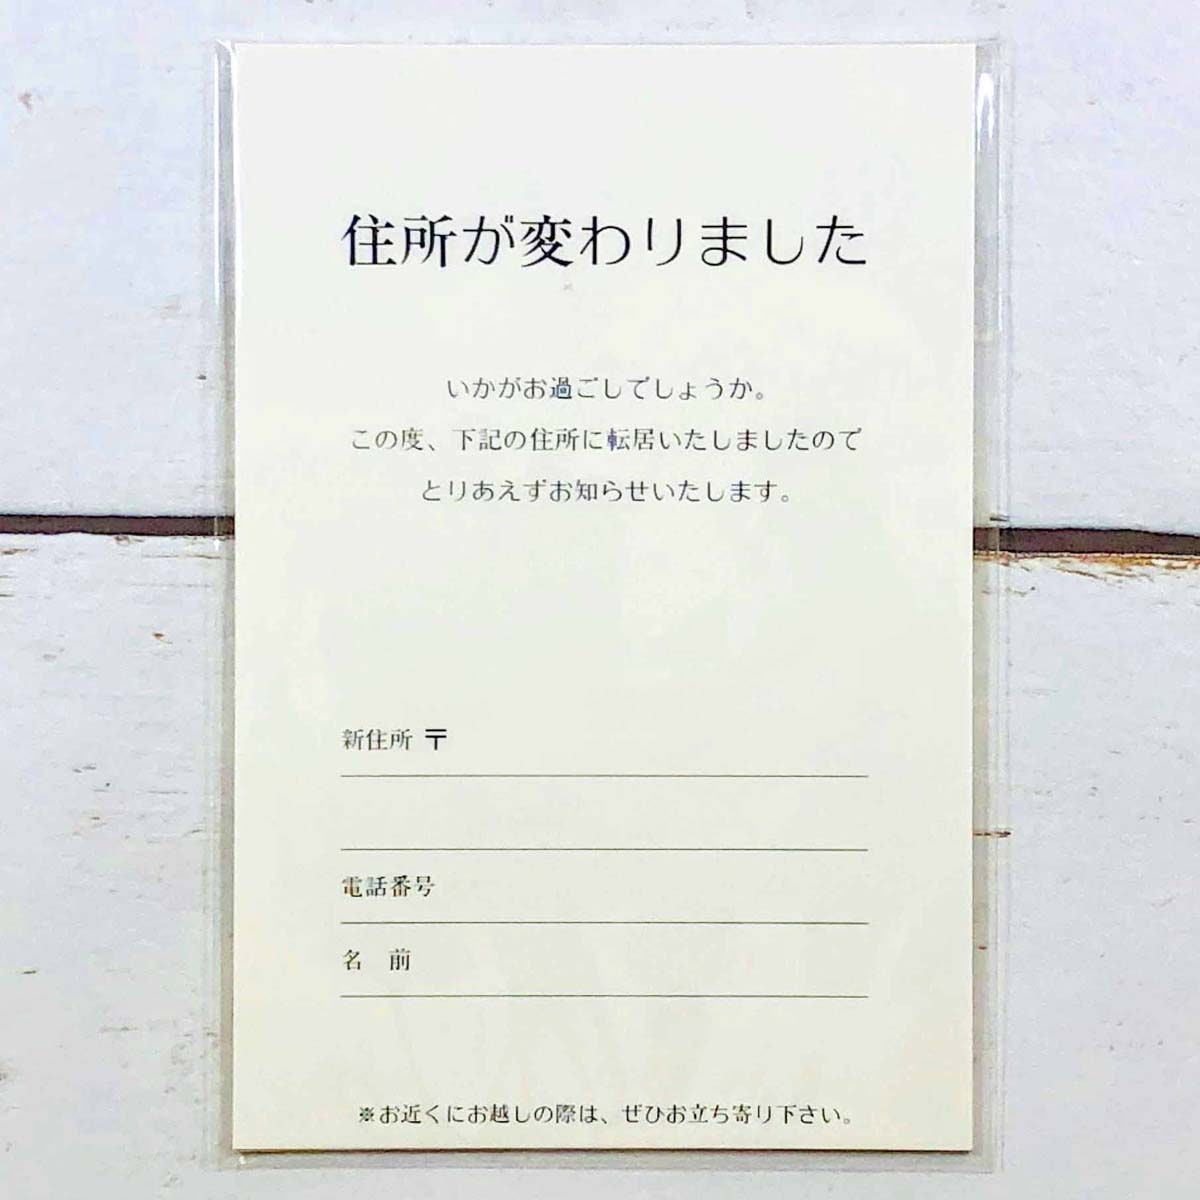 住所が変わりました
いかがお過ごしでしょうか。
この度、下記の住所に転居いたしましたので
とりあえずお知らせいたします。
新住所 〒
電話番号
名　前
※お近くにお越しの際は、ぜひお立ち寄り下さい。